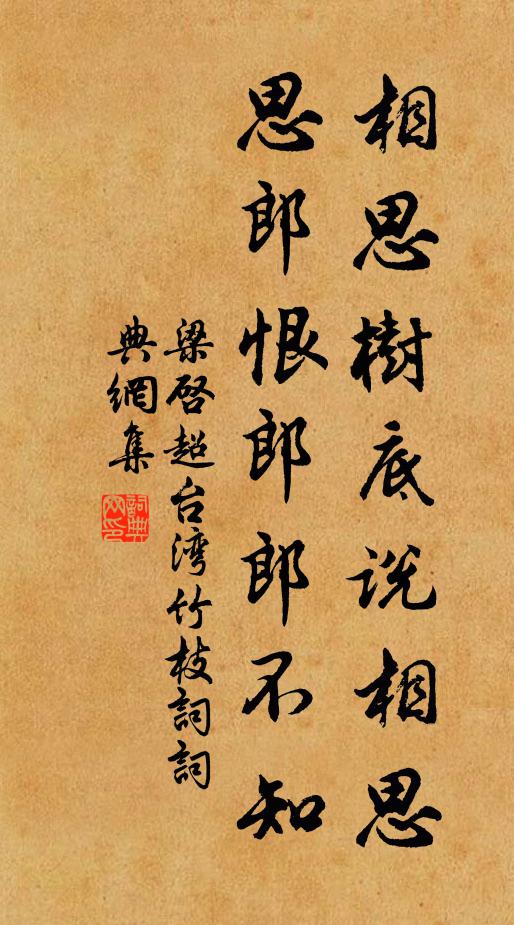 相思樹底说相思
思郎恨郎郎不知
梁啓超台湾竹枝詞詞
典網集
詞典
网印